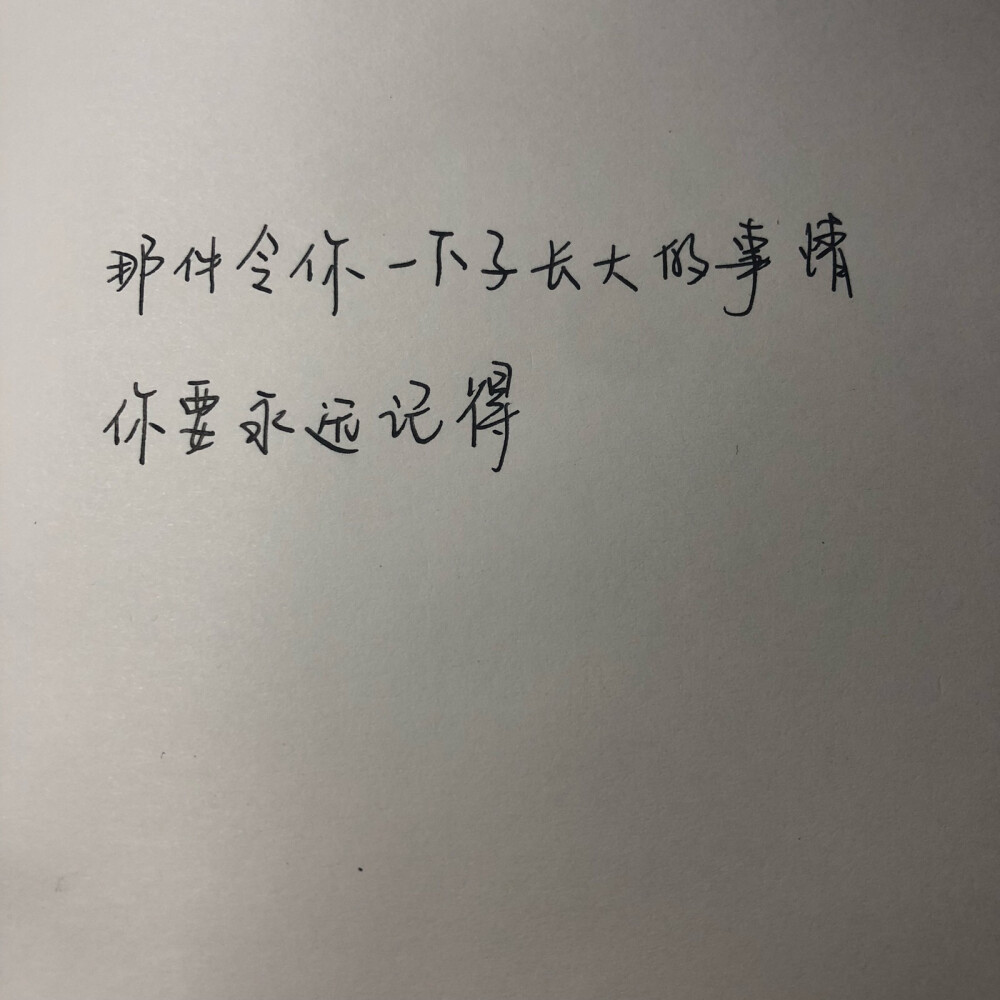 那件令你一下子长大的事情
你要永远记得